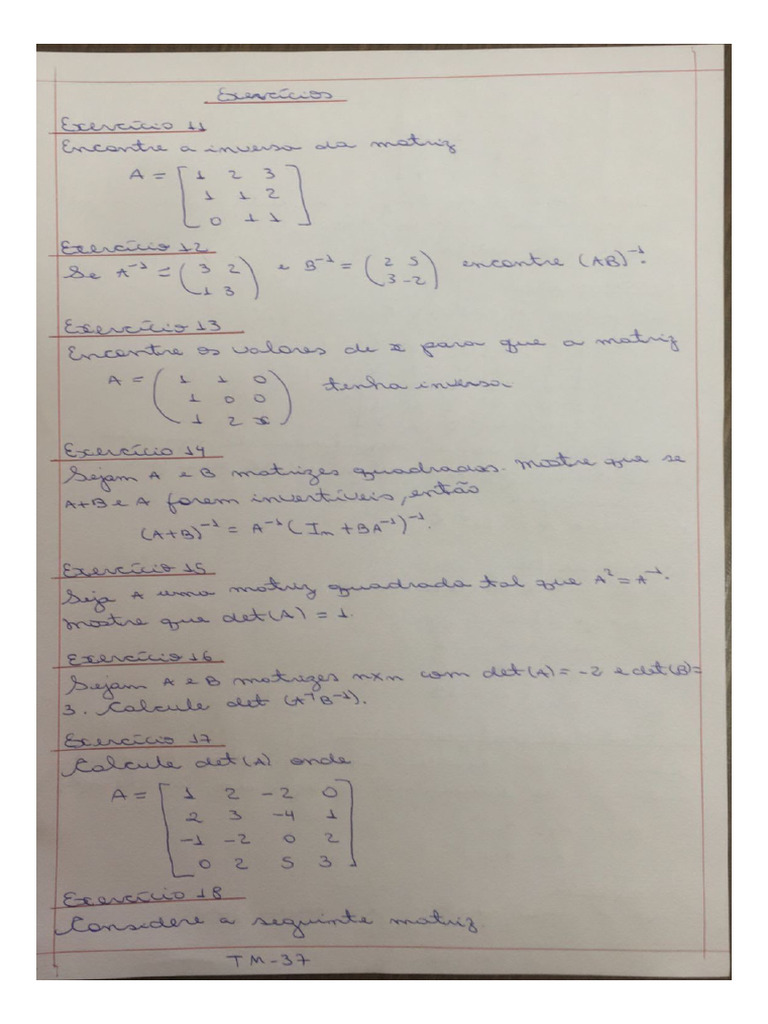 Exercícios
Exercício 11
Encontre a inversa da matriz
A = [ 1 2 3
1 1 2
0 1 1 ]
Exercício 12
Se A⁻¹ = ( 3 2
1 3 ) e B⁻¹ = ( 2 5
3 -2 ) encontre (AB)⁻¹.
Exercício 13
Encontre os valores de x para que a matriz
A = ( 1 1 0
1 0 0
1 2 x ) tenha inversa
Exercício 14
Sejam A e B matrizes quadradas. Mostre que se
A+B e A forem invertíveis, então
(A+B)⁻¹ = A⁻¹(Im + BA⁻¹)⁻¹.
Exercício 15
Seja A uma matriz quadrada tal que A² = A⁻¹.
Mostre que det(A) = 1.
Exercício 16
Sejam A e B matrizes n×n com det(A) = -2 e det(B) =
3. Calcule det (AᵀB⁻¹).
Exercício 17
Calcule det(A) onde
A = [ 1 2 -2 0
2 3 -4 1
-1 -2 0 2
0 2 5 3 ]
Exercício 18
Considere a seguinte matriz
TM-37